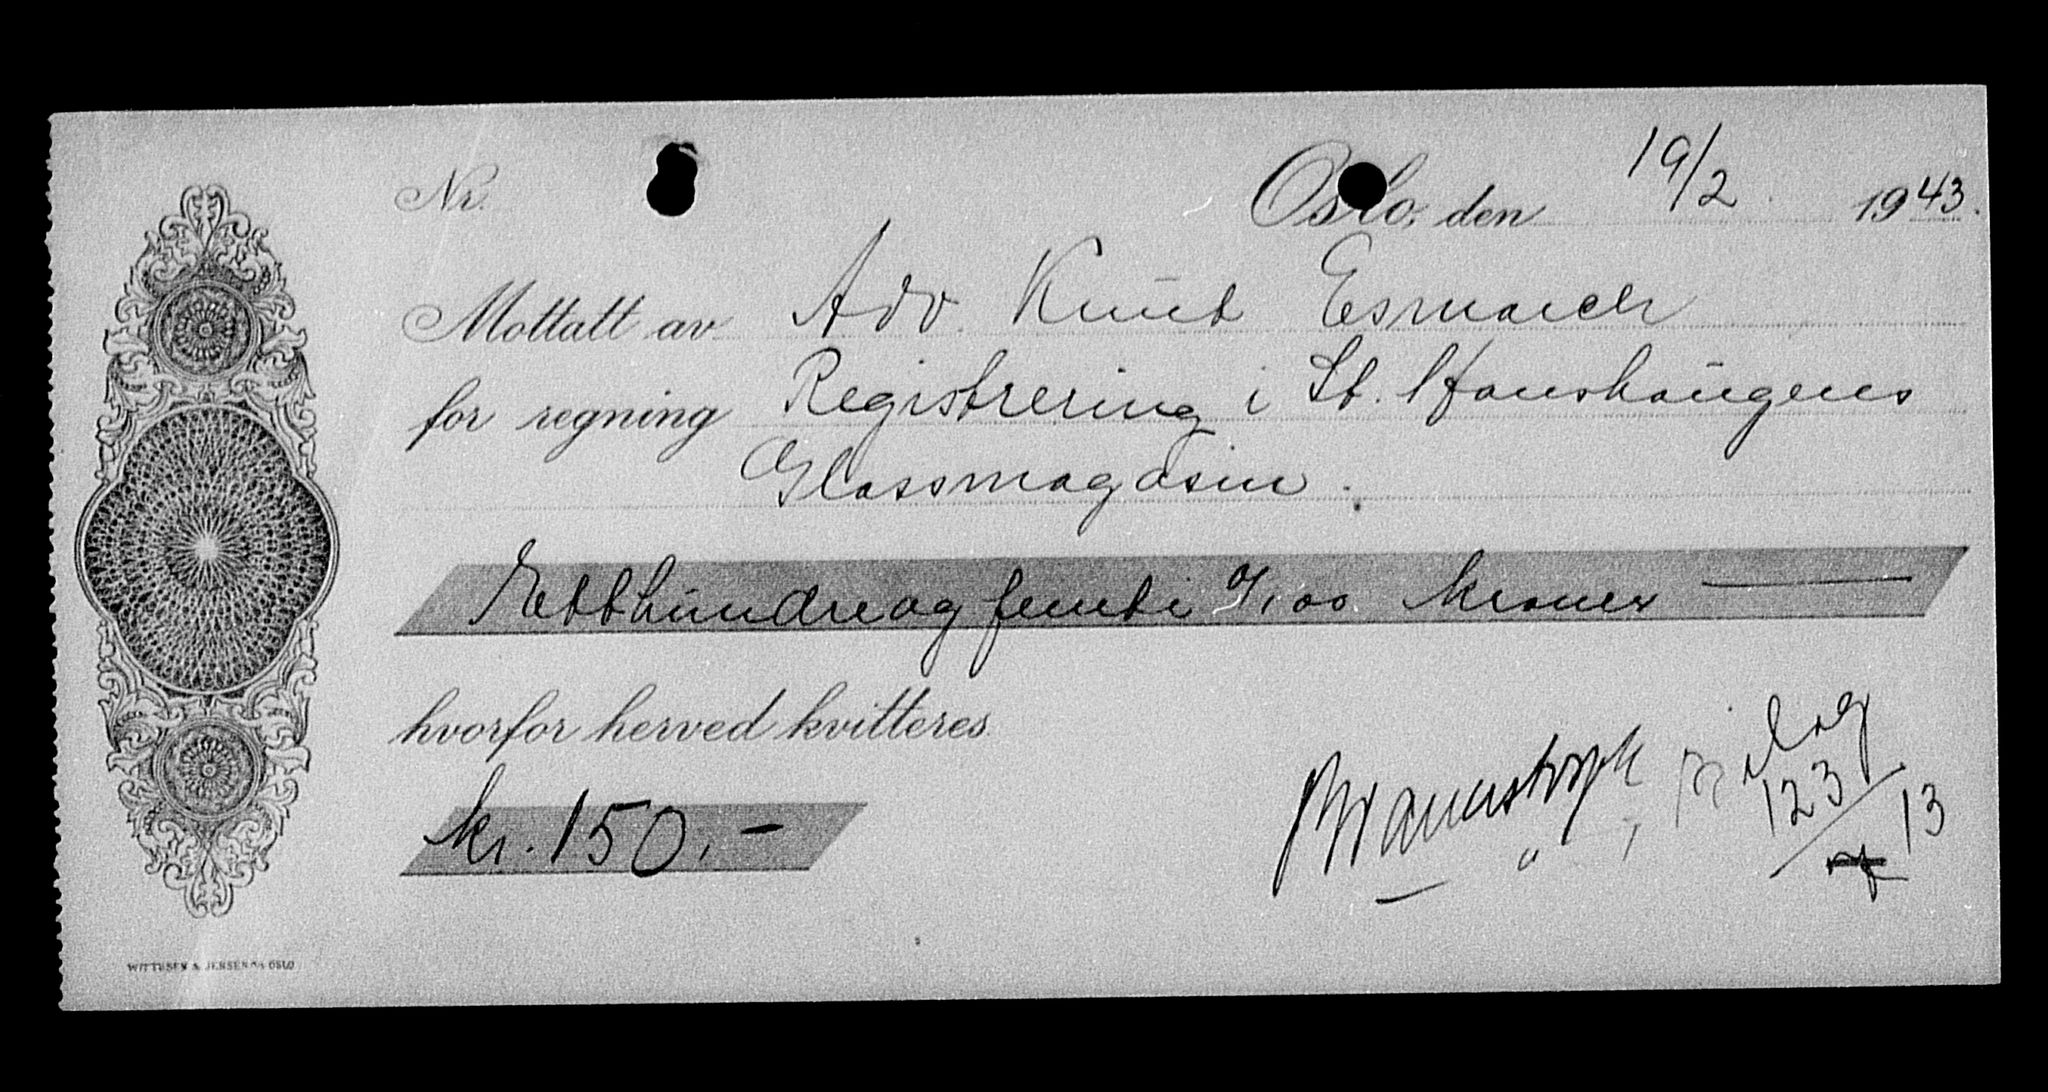 Nr.
Oslo, den 19/2 1943.
Mottatt av Adv. Knut Esmarch
for regning Registrering i St. Hanshaugens
Glassmagasin.
Etthundreogfemti 0/100 kroner
hvorfor herved kvitteres
Bilag
123
13
kr. 150.-
WITTUSEN & JENSEN A/S OSLO